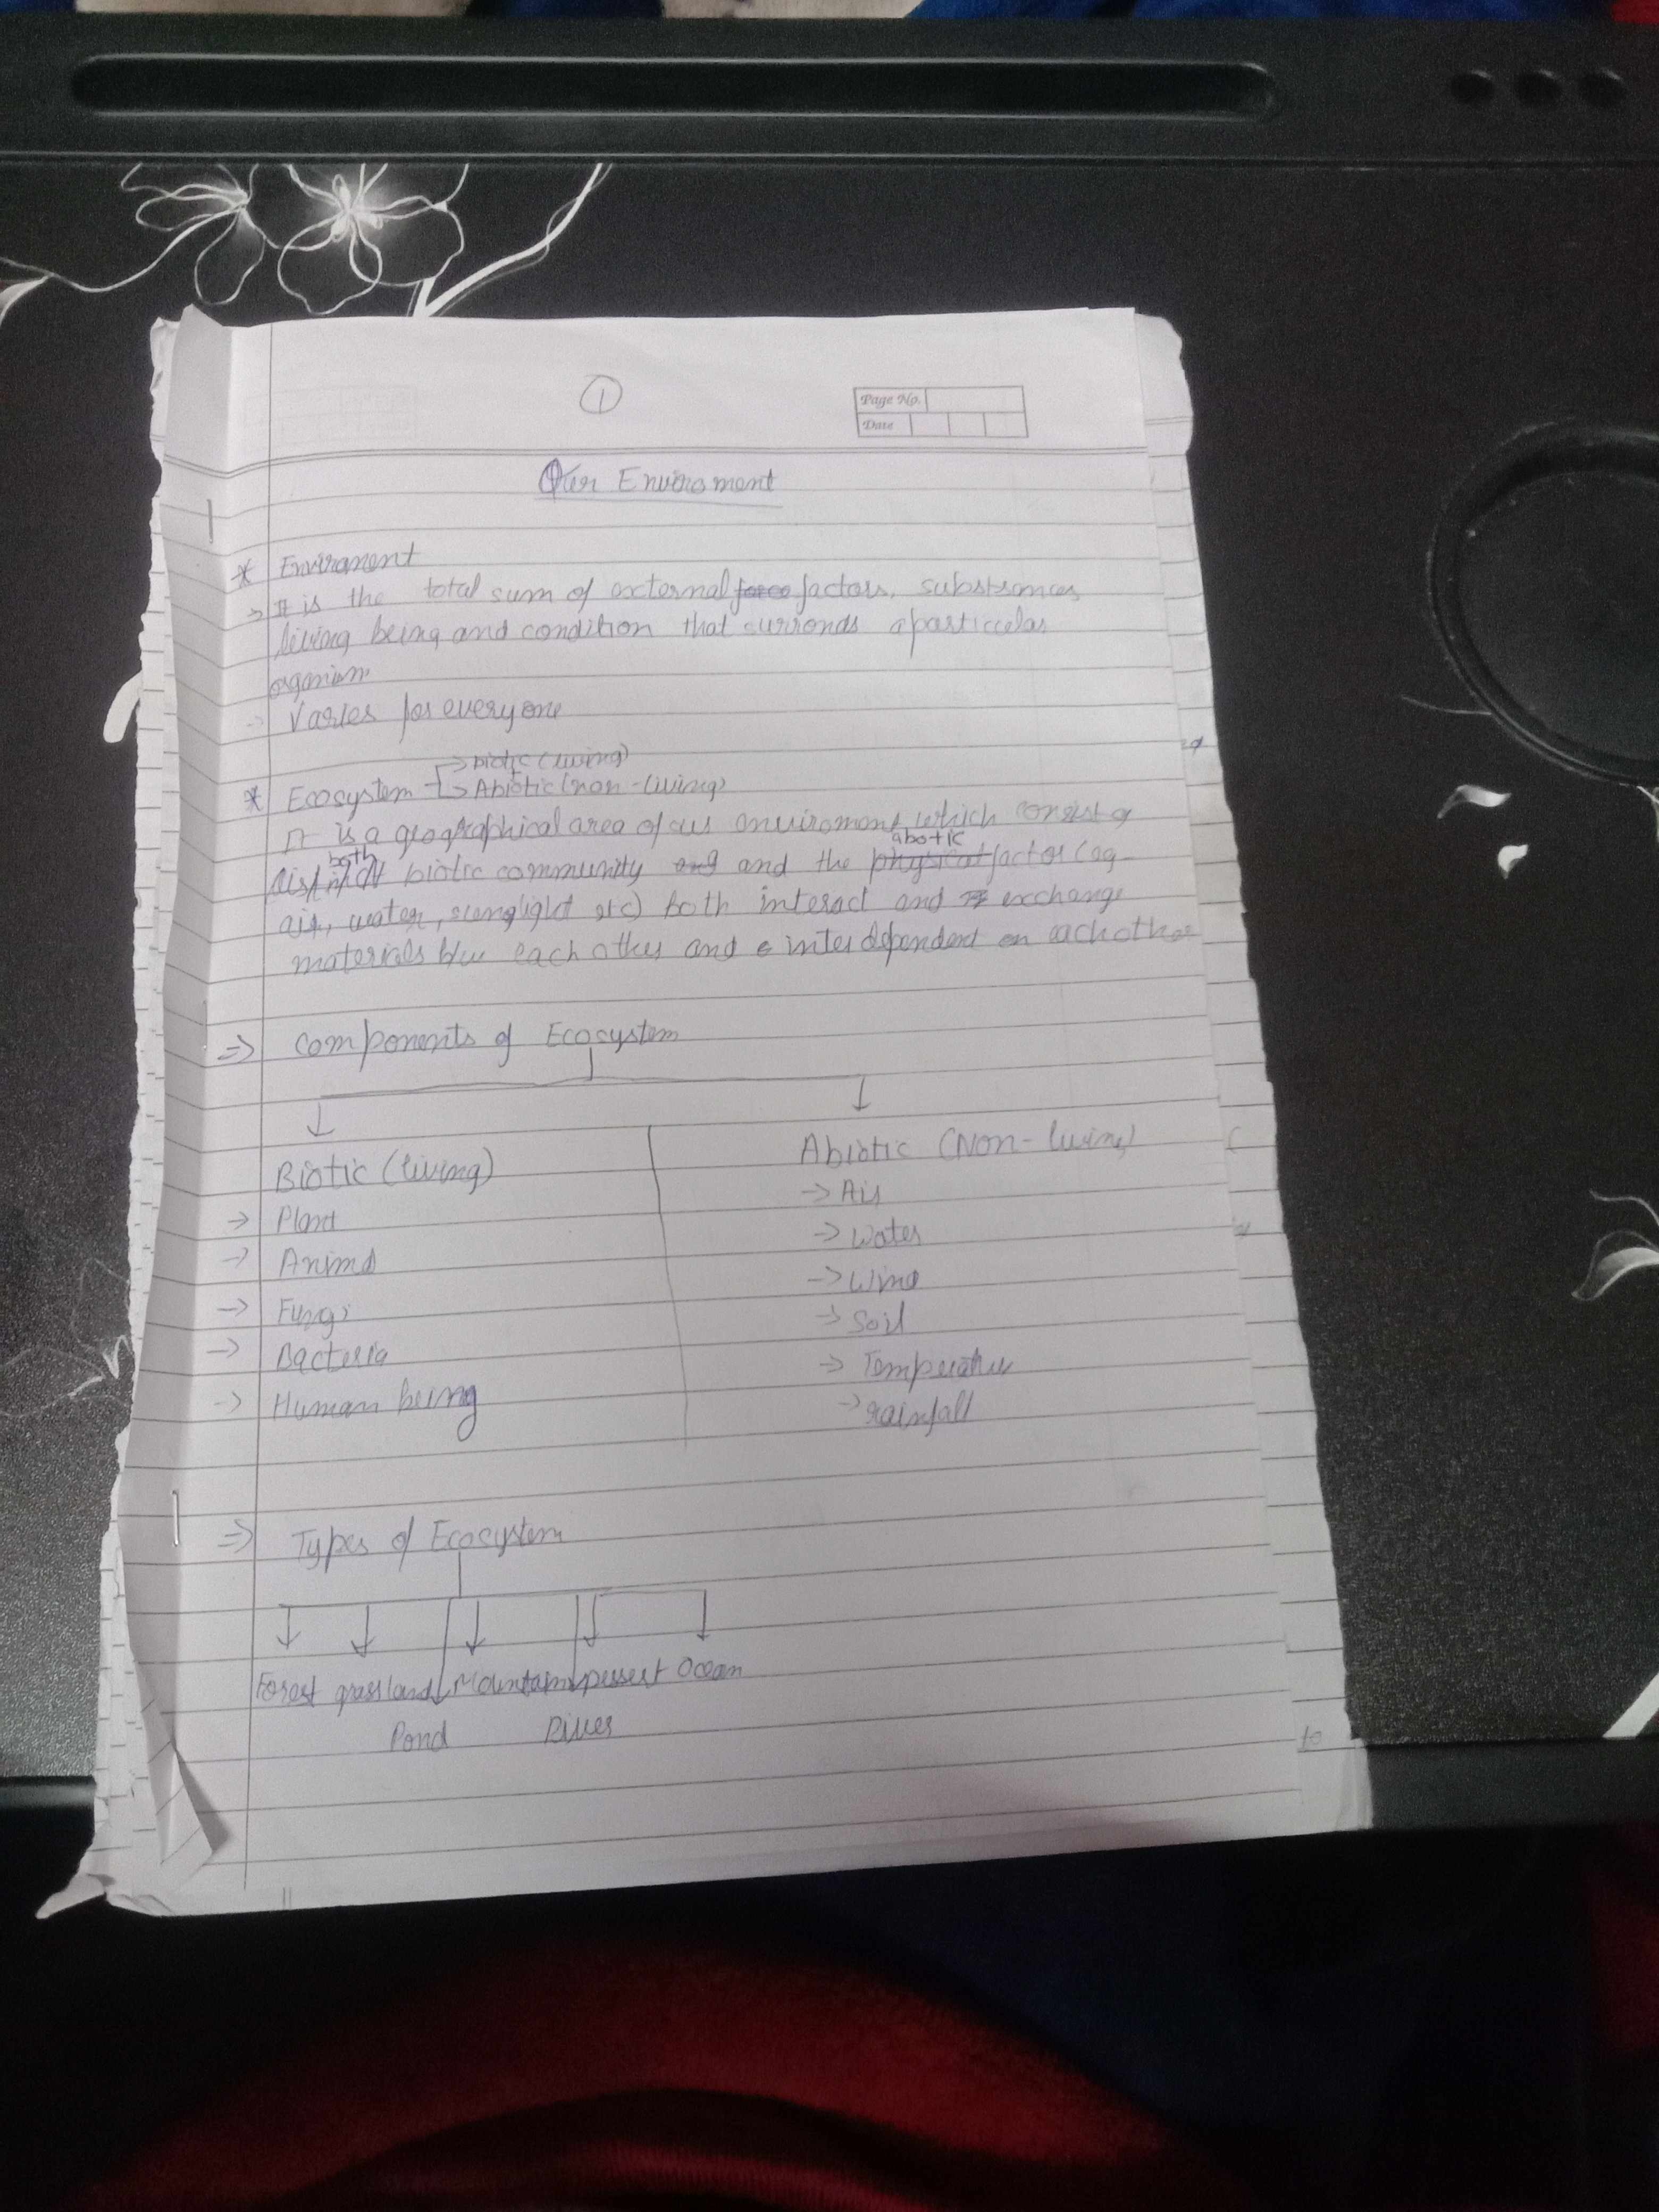 1
Page No.
Date
Our Enviroment
* Enviroment
→ It is the total sum of external force factors, substances
living being and condition that surronds a particular
organism
→ Varies for everyone
→ biotic (living)
* Ecosystem → Abiotic (non-living)
It is a geographical area of our enviroment which consist of
both abotic
biotic community and and the physical factor (eg-
air, water, sunglight etc) both interact and exchange
materials b/w each other and interdependent on each other
⇒ Components of Ecosystem
Biotic (living) Abiotic (Non-living)
→ Plant → Air
→ Animal → Water
→ Fungi → Wind
→ Bacteria → Soil
→ Human being → Temperature
→ rainfall
⇒ Types of Ecosystem
Forest grassland Mountain Dessert Ocean
Pond River